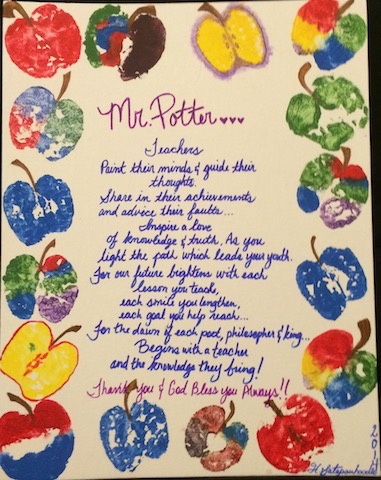 Mr. Potter ♥♥♥
Teachers
Paint their minds & guide their
thoughts.
Share in their achievements
and advice their faults...
Inspire a love
of knowledge & truth. As you
light the path which leads your youth.
For our future brightens with each
lesson you teach,
each smile you lengthen,
each goal you help reach...
For the dawn of each poet, philosopher & king...
Begins with a teacher
and the knowledge they bring!
Thank you & God Bless you Always!!